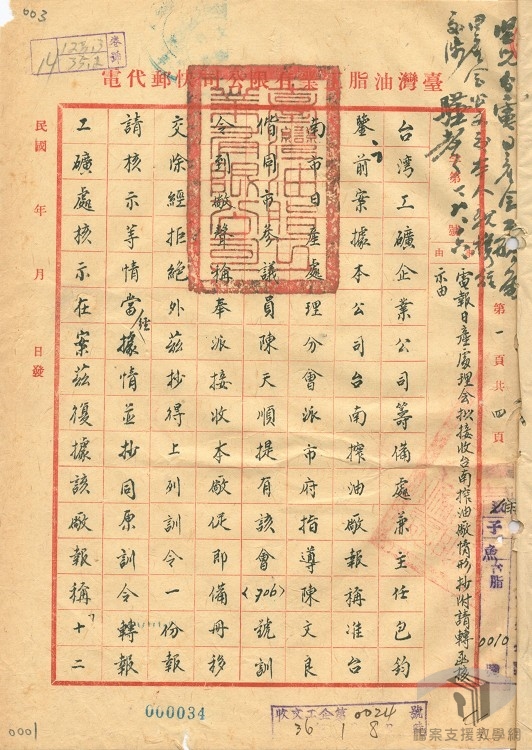 003
卷號
14
123.3
35.2
臺灣油脂
有限公司快郵代電
字第
號
第一頁共四頁
由
電報日產處理會擬接收台南搾油廠情形抄附請轉函核
示由
台湾工礦企業公司籌備處兼主任包鈞
鑒前案據本公司台南搾油廠報稱准台
南市日產處理分會派市府指導陳文良
偕同市參議員陳天順提有該會<706>號訓
令到廠聲稱奉派接收本廠促即備冊移
交除經拒絕外茲抄得上列訓令一份報
請核示等情當經據情並抄同原訓令轉報
工礦處核示在案茲復據該廠報稱十二
民國 年 月 日發
0010
000034
收文工企第0024號
36 1 8
0001
檔案支援教學網